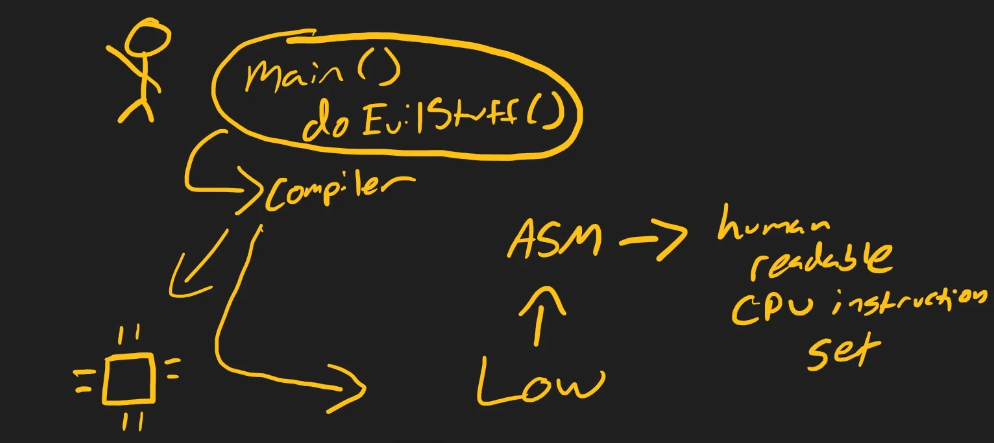 main()
do EvilStuff()
Compiler
ASM → human
readable
CPU instruction
set
Low